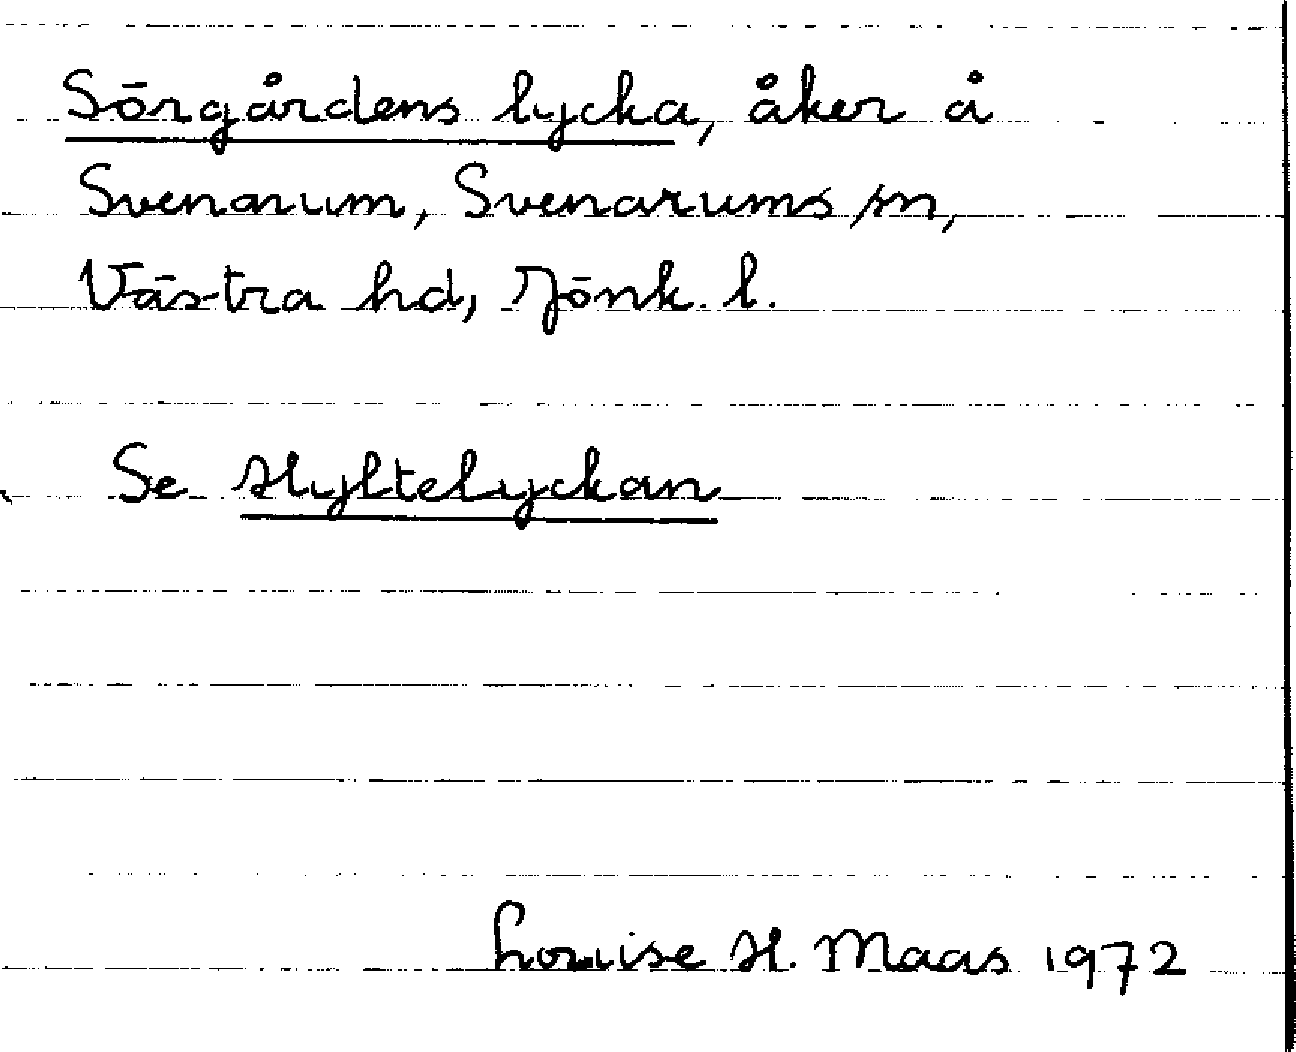 Sörgårdens lycka, åker å
Svenarum, Svenarums sn,
Västra hd, Jönk. l.
Se Hyltelyckan
Louise H. Maas 1972